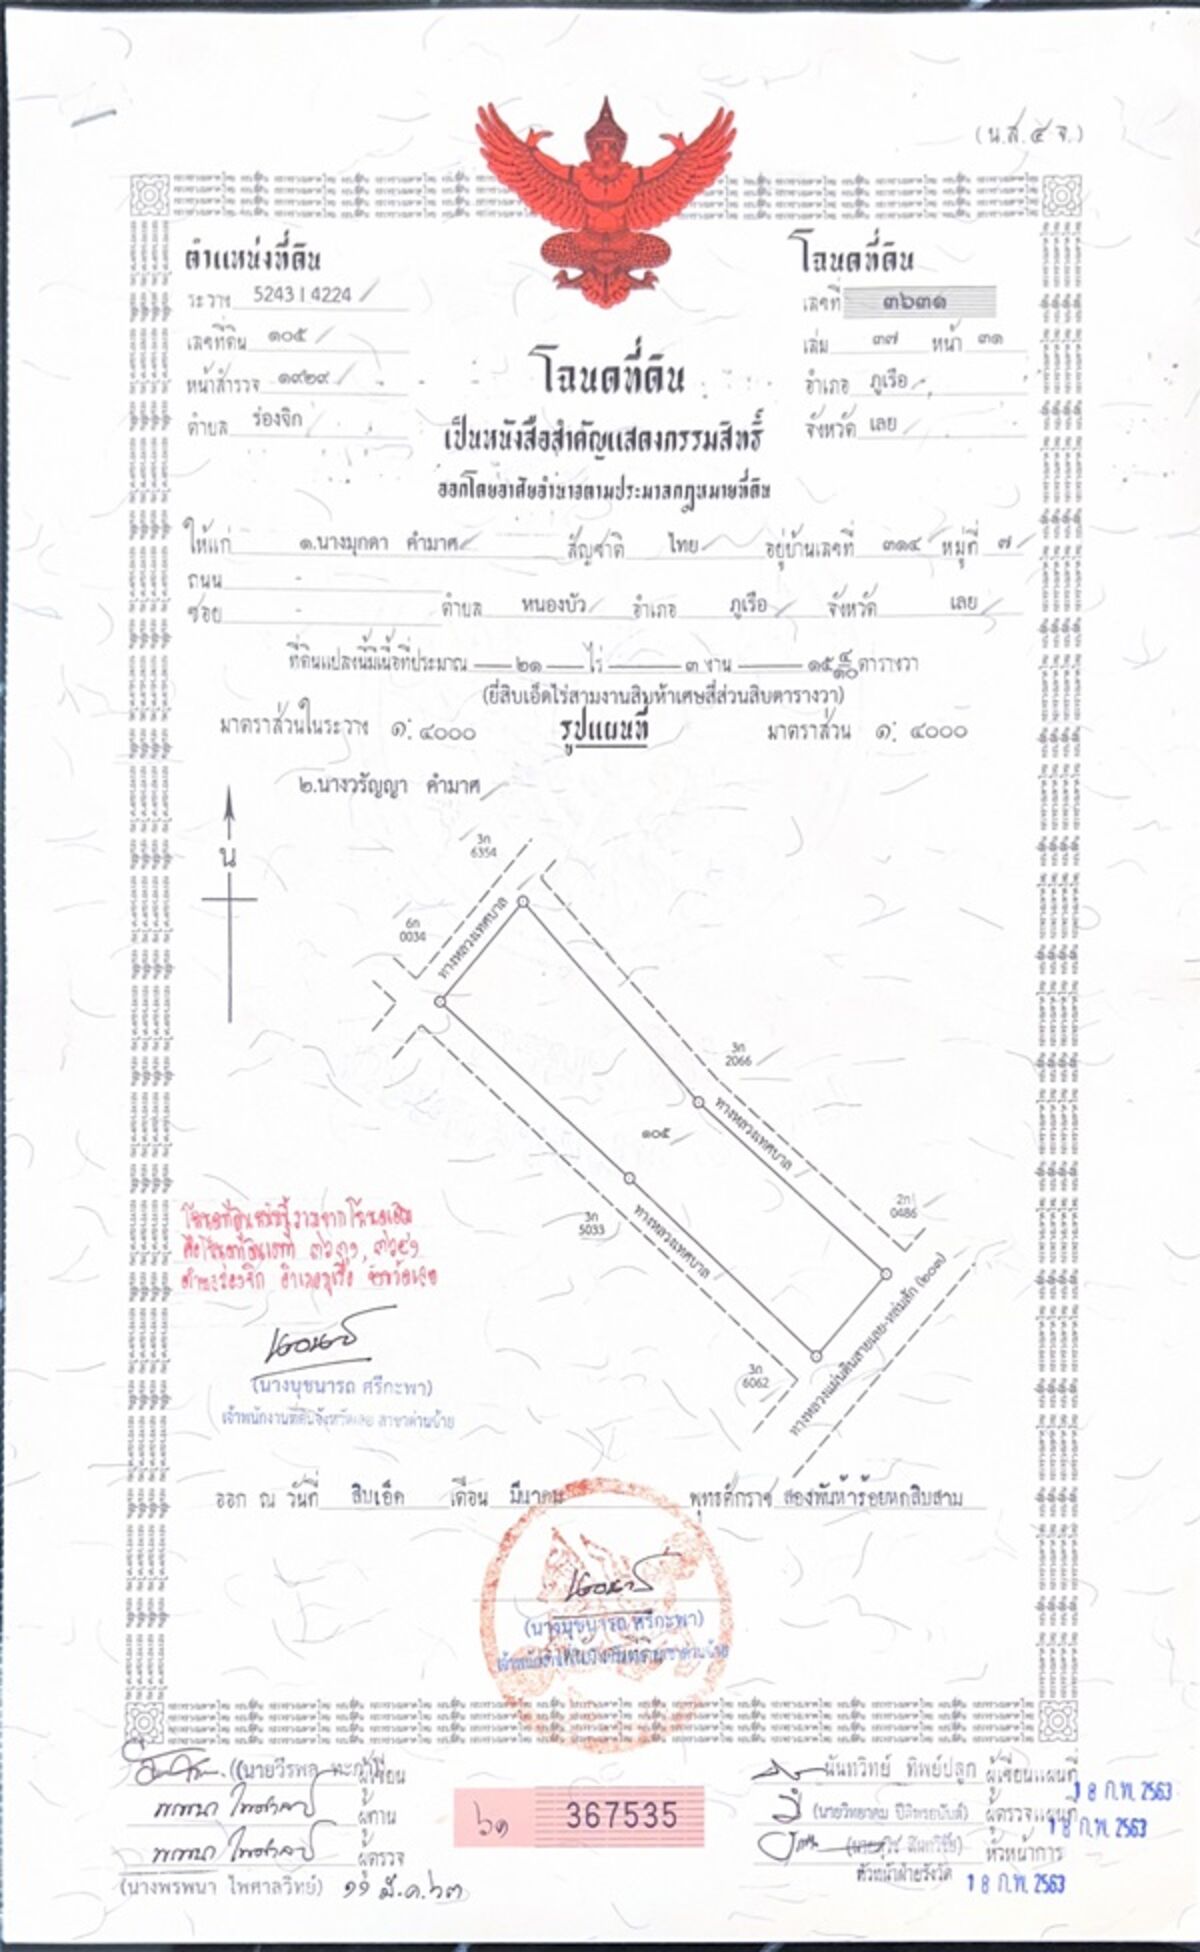 (น.ส.๔ จ.)
ตำแหน่งที่ดิน
ระวาง 5243 I 4224
เลขที่ดิน ๑๐๕
หน้าสำรวจ ๑๙๒๙
ตำบล ร่องจิก
โฉนดที่ดิน
เลขที่ ๓๖๓๑
เล่ม ๓๗ หน้า ๓๑
อำเภอ ภูเรือ
จังหวัด เลย
โฉนดที่ดิน
เป็นหนังสือสำคัญแสดงกรรมสิทธิ์
ออกโดยอาศัยอำนาจตามประมวลกฎหมายที่ดิน
ให้แก่ ๑.นางมุกดา คำมาศ สัญชาติ ไทย อยู่บ้านเลขที่ ๓๑๔ หมู่ที่ ๗
ถนน -
ซอย - ตำบล หนองบัว อำเภอ ภูเรือ จังหวัด เลย
ที่ดินแปลงนี้มีเนื้อที่ประมาณ ๒๑ ไร่ ๓ งาน ๑๕ ๔/๑๐ ตารางวา
(ยี่สิบเอ็ดไร่สามงานสิบห้าเศษสี่ส่วนสิบตารางวา)
มาตราส่วนในระวาง ๑: ๔๐๐๐ รูปแผนที่ มาตราส่วน ๑: ๔๐๐๐
๒.นางวรัญญา คำมาศ
น
3ก
6354
6ก
0034
ทางหลวงเทศบาล
3ก
2066
๑๐๕
ทางหลวงเทศบาล
2ก
0486
3ก
5033
ทางหลวงเทศบาล
3ก
6062
ทางหลวงแผ่นดินสายเลย-หล่มสัก (๒๐๓)
ตำบลร่องจิก อำเภอภูเรือ จังหวัดเลย
(นางนุชนารถ ศรีกะพา)
เจ้าพนักงานที่ดินจังหวัดเลย สาขาด่านซ้าย
ออก ณ วันที่ สิบเอ็ด เดือน มีนาคม พุทธศักราช สองพันห้าร้อยหกสิบสาม
(นางนุชนารถ ศรีกะพา)
เจ้าพนักงานที่ดินจังหวัดเลย สาขาด่านซ้าย
ผู้เขียน
ผู้ทาน
ผู้ตรวจ
(นางพรพนา ไพศาลวิทย์) ๑๑ มี.ค.๖๓
๖๑ 367535
นันทวิทย์ ทิพย์ปลูก ผู้เขียนแผนที่ 18 ก.พ. 2563
ผู้ตรวจแผนที่ 18 ก.พ. 2563
หัวหน้าการ
หัวหน้าฝ่ายรังวัด 18 ก.พ. 2563